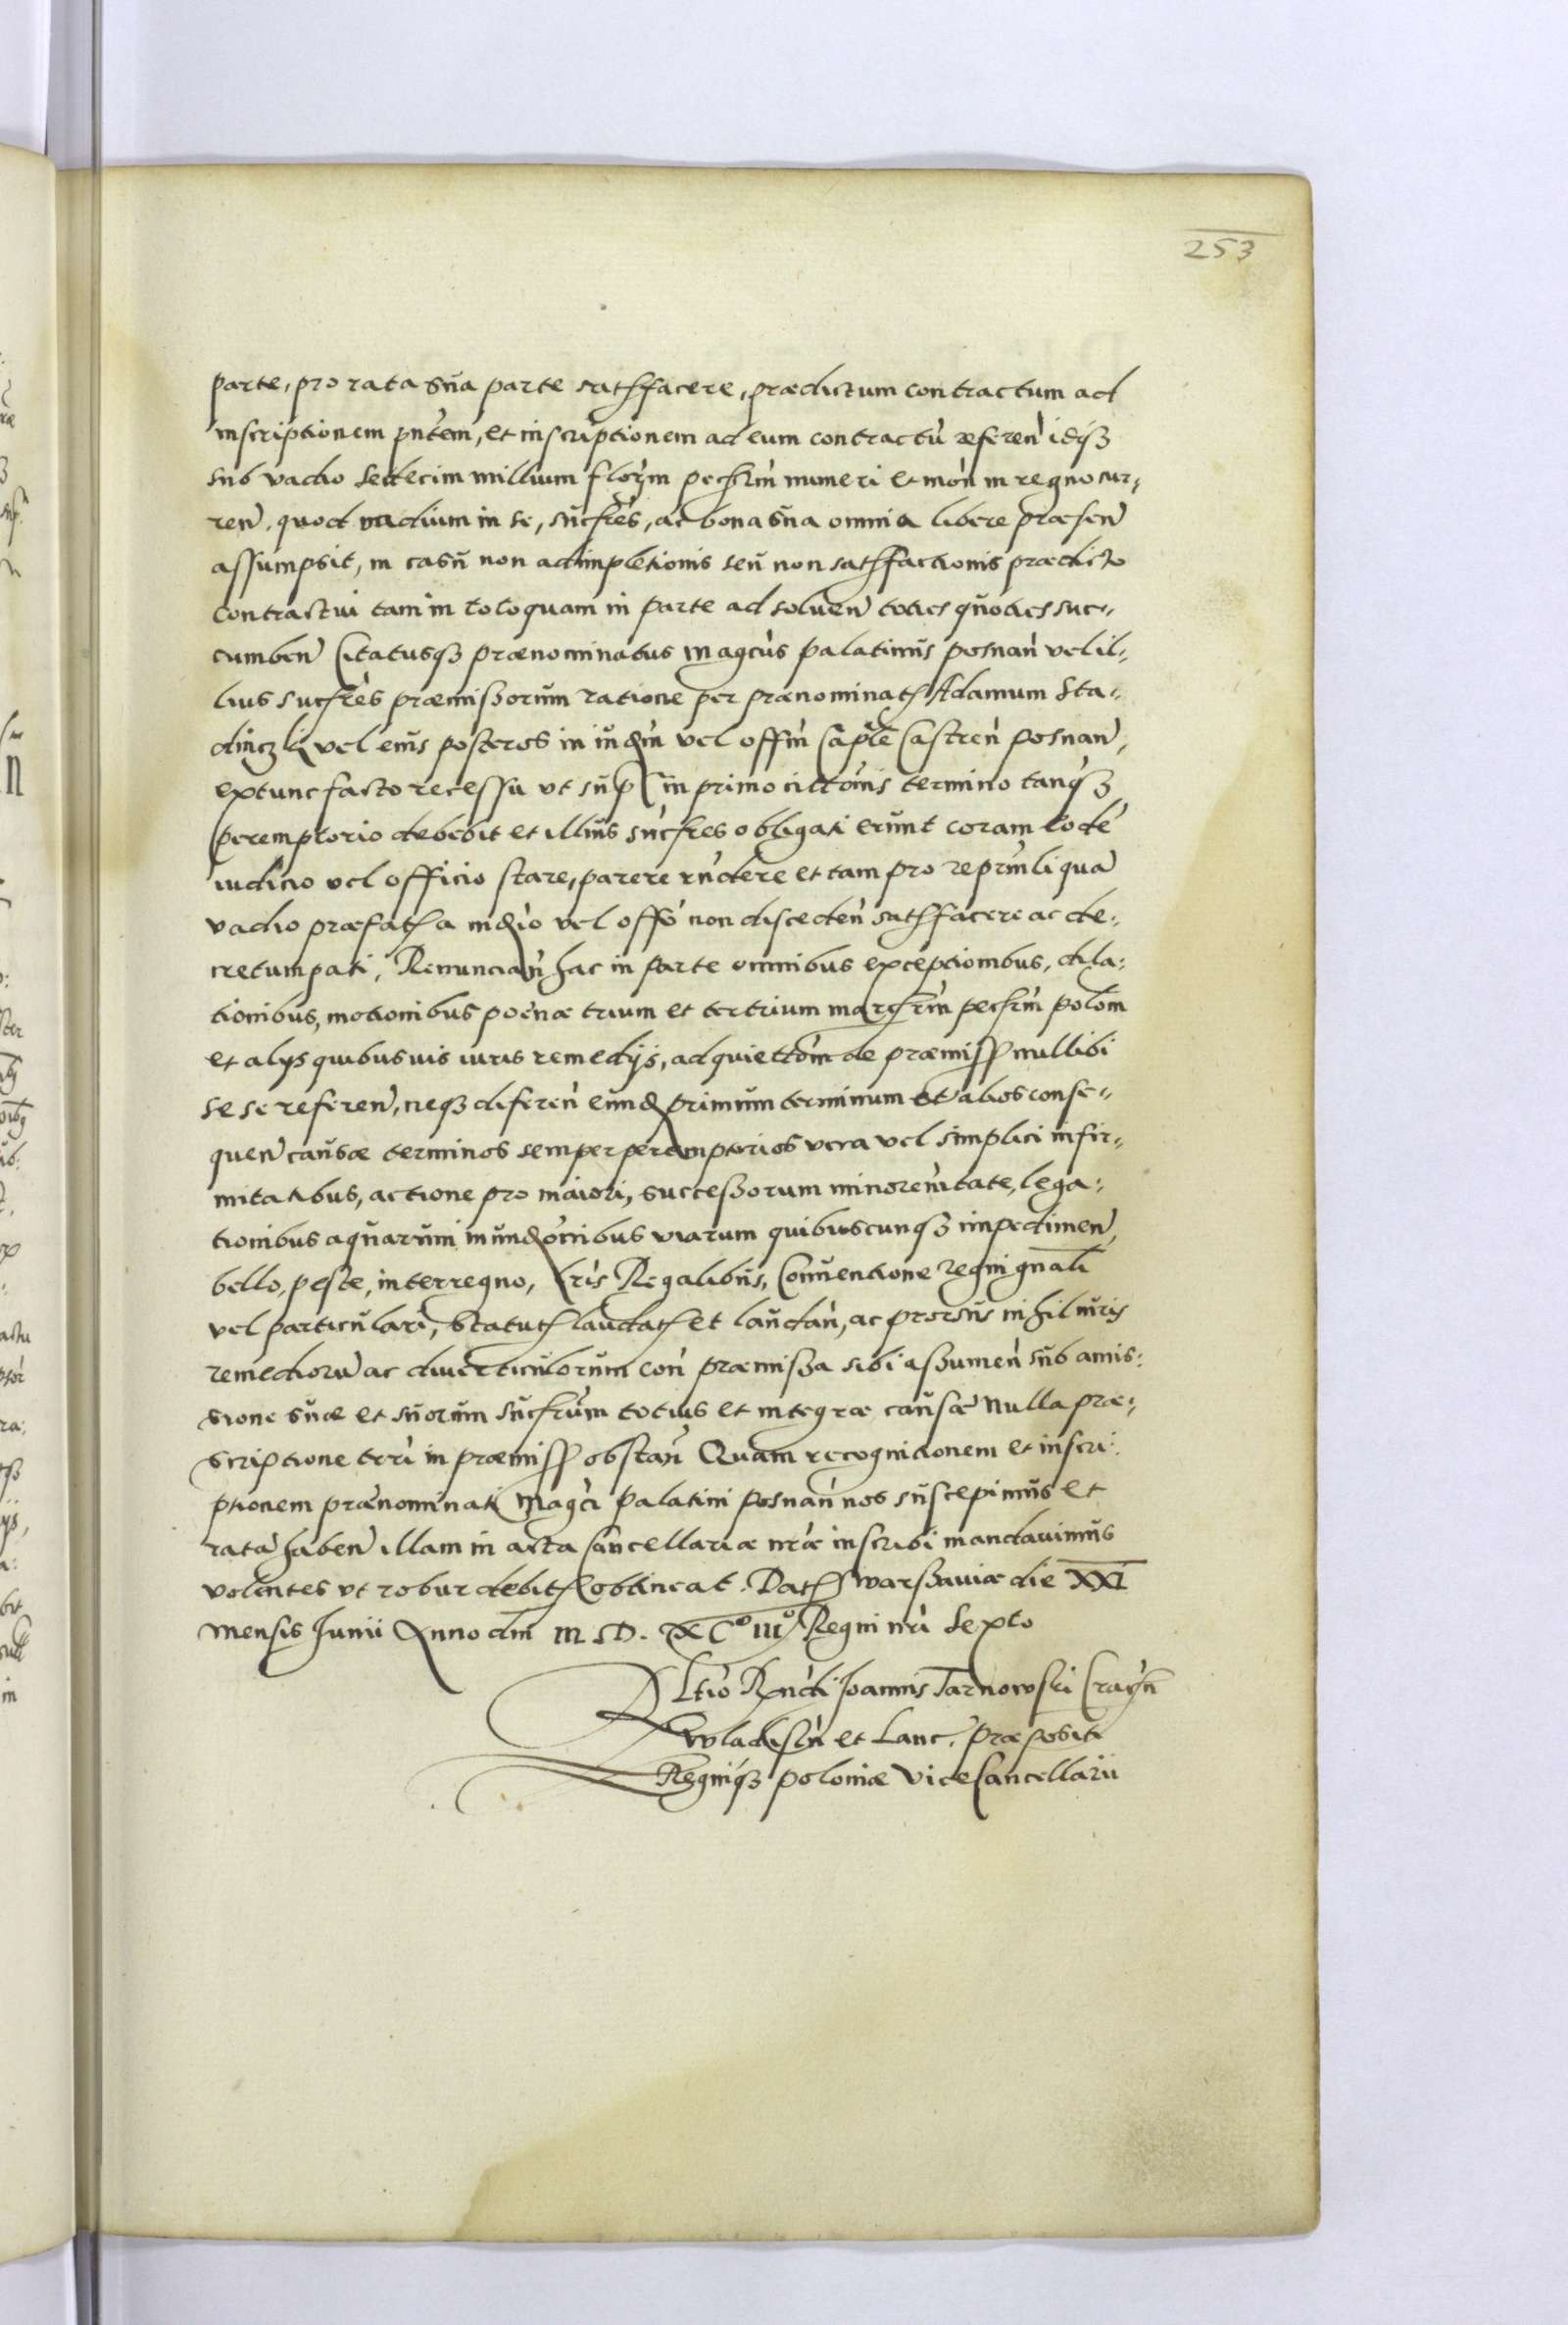 253
parte, pro rata sua parte satisfacere, prædictum contractum ad
inscriptionem pntem, et inscriptionem ad eum contractu referen idqz
sub vadio sedecim millium florm peclrm numeri et mon in regno cur-
ren. quod vadium in se, sucfres, ac bona sua omnia libere præsen
assumpsit, in casu non adimpletionis seu non satisfactionis prædicto
contractui tam in toto quam in parte ad soluen toties quoties suc-
cumben Citatusqz prænominatus magcus palatinus posnan vel il-
lius sucfres præmissorum ratione per prænominat Adamum Sta-
dinczki vel eius posteros in iudm vel offm Caple Castren posnan,
extunc facto recessu ut supr in primo cittonis termino tanqz
peremptorio debebit et illius sucfres obligati erunt coram eode
iudicio vel officio stare, parere rndere et tam pro reprinli qua
vadio præfat a iudio vel offo non disceden satisfacere ac de:
cretum pati, Renuncian hac in parte omnibus exceptionibus, dila:
tionibus, motionibus poenæ trium et ter trium marcrm peclrm polon
et alys quibusuis iuris remedijs, ad quiettom de præmiss nullibi
se se referen, neqz deferen eund primum terminum et alios conse-
quen causæ terminos semper peremptorios vera vel simplici infir-
mitatibus, actione pro maiori, successorum minorenitate, lega:
tionibus aquarum inundonibus viarum quibuscunqz impedimen,
bello, peste, interregno, lris Regalibus, Conuentione regni gnali
vel particulari, statut laudat et laudan, ac prorsus nihil iuris
remedioru ac diuerticulorum con præmissa sibi assumen sub amis:
sione suæ et suorum sucfrum totius et integræ causæ nulla præ:
scriptione trri in præmiss obstan Quam recognitionem et inscri:
ptionem prænominati magci palatini posnan nos suscepimus et
rata haben illam in acta Cancellariæ nræ inscribi mandauimus
volentes ut robur debit obtineat. Dat warssauiæ die XXI
mensis Junii Anno dni M D. XC° III° Regni nri Sexto
Rltio Rndi Joannis Tarnowski Crayn
wladisln et Lanc. præpositi
Regniqz poloniæ viceCancellarii